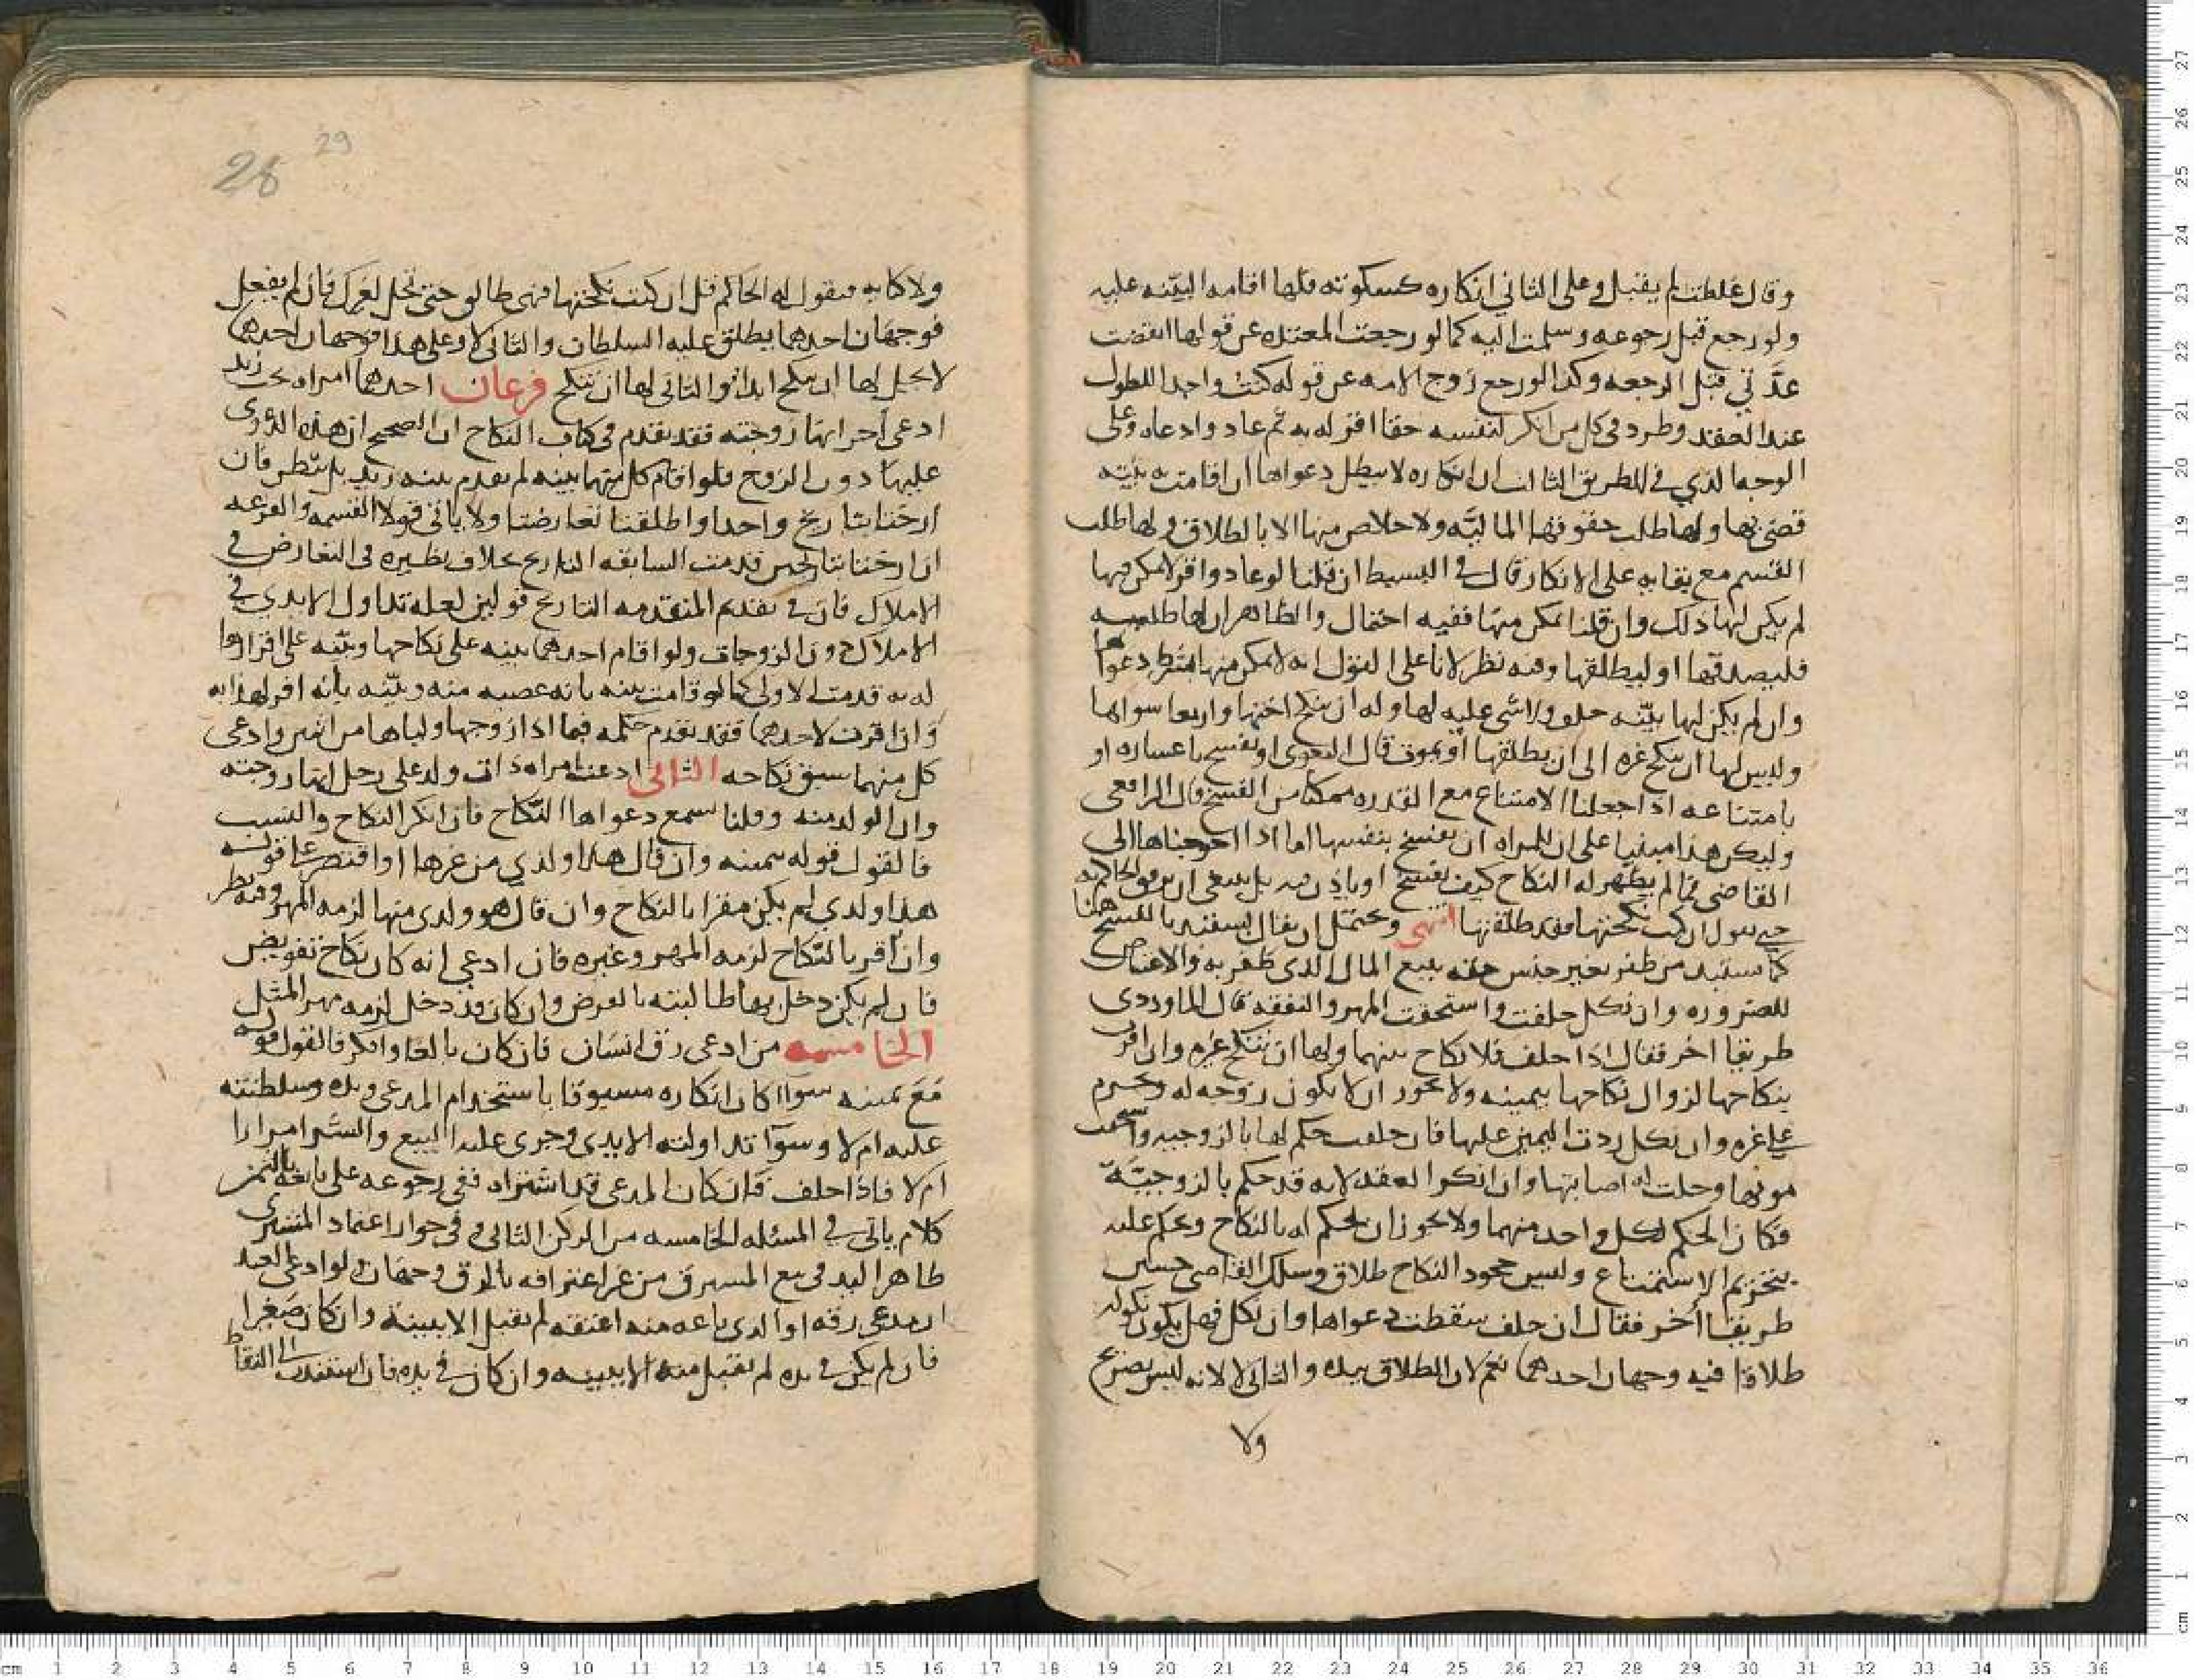 وقال غلطت لم يقبل وعلى الثاني انكاره كسكوته فلها اقامه البيّنه عليه
ولو رجع قبل رجوعه وسلمت اليه كما لو رجعت المعتده عن قولها انقضت
عدّتي قبل الرجعه وكذا لو رجع زوج الامه عن قوله كنت واجدا للطول
عند العقد وطرد في كل من انكر لنفسه حقا اقر له به ثم عاد وادعاه وعلى
الوجه الذي في الطريق الثالث ان انكاره لا يبطل دعواها ان اقامت به بيّنه
قضى بها ولها طلب حقوقها الماليّه ولا خلاص منها الا بالطلاق ولها طلب
القسم مع بقايه على الانكار قال في البسيط ان قلنا لو عاد واقر لا يمكن منها
لم يكن لها ذلك وان قلنا يمكن منها ففيه احتمال والظاهر ان لها طلبه
فليصدقها او ليطلقها وفيه نظر لانا على القول انه لا يمكن منها دعواها
وان لم يكن لها بيّنه حلف ولا شي عليه لها وله ان ينكح اختها واربعا سواها
وليس لها ان تنكح غيره الى ان يطلقها او يموت قال البغوي او يفسخ باعساره او
بامتناعه اذا جعلنا الامتناع مع القدره ممكنا من الفسخ قال الرافعي
وليكن هذا مبنيا على ان للمراه ان تفسخ بنفسها اما اذا احوجناها الى
القاضي فما لم يظهر له النكاح كيف يفسخ او ياذن فيه بل ينبغي ان يرفق الحاكم به
حتى يقول ان كنت نكحتها فقد طلقتها انتهى ويحتمل ان يقال يستفيد بالفسخ هنا
كما يستفيد من ظفر بغير جنس حقه ببيع المال الذي ظفر به والاعتياض
للضروره وان نكل حلفت واستحقت المهر والنفقه قال الماوردي
طريقا اخر فقال اذا حلف فلا نكاح بينهما ولها ان تنكح غيره وان اقر
بنكاحها لزوال نكاحها بيمينه ولا يجوز ان لا تكون زوجه له وتحرم
على غيره وان نكل ردت اليمين عليها فان حلفت حكم لها بالزوجيه واستحقت
مونها وحلت له اصابتها وان انكر العقد لانه قد حكم بالزوجيّه
فكان الحكم لكل واحد منهما ولا يجوز ان يحكم له بالنكاح ويحكم عليه
بتحريم الاستمتاع وليس جحود النكاح طلاق وسلك القاضي حسين
طريقا اخر فقال ان حلف سقطت دعواها وان نكل فهل يكون نكوله
طلاقا فيه وجهان احدهما نعم لان الطلاق بيده والثاني لا لانه ليس بصريح
ولا
28 29
ولا كنايه فيقول له الحاكم قل ان كنت نكحتها فهي طالق حتى تحل لغيرك فان لم يفعل
فوجهان احدهما يطلق عليه السلطان والثاني لا وعلى هذا فوجهان احدهما
لا يحل لها ان تنكح ابدا والثاني لها ان تنكح فرعان احدهما امراه تحت زيد
ادعى اخر انها زوجته فقد تقدم في كتاب النكاح ان الصحيح ان هذه الدعوى
عليها دون الزوج فلو اقام كل منهما بينه لم تقدم بينه زيد بل ينظر فان
ارختا بتاريخ واحد او اطلقتا تعارضتا ولا ياتي قولا القسمه والقرعه
ان ارختا بتاريخين قدمت السابقه التاريخ بخلاف نظيره في التعارض في
الاملاك فان في تقديم المتقدمه التاريخ قولين لعله تداول الايدي في
الاملاك دون الزوجات ولو اقام احدهما بينه على نكاحها وبيّنه على اقرارها
له به قدمت الاولى كما لو قامت بينه بانه غصبه منه وبيّنه بانه اقر له به
وان اقرت لاحدهما فقد تقدم حكمه فيما اذا زوجها وليّاها من اثنين وادعى
كل منهما سبق نكاحه الثاني ادعت امراه ذات ولد على رجل انها زوجته
وان الولد منه وقلنا تسمع دعواها النكاح فان انكر النكاح والنسب
فالقول قوله بيمينه وان قال هذا ولدي من غيرها او اقتصر على قوله
هذا ولدي لم يكن مقرا بالنكاح وان قال هو ولدي منها لزمه المهر وفيه نظر
وان اقر بالنّكاح لزمه المهر وغيره فان ادعى انه كان نكاح تفويض
فان لم يكن دخل بها طالبته بالفرض وان كان قد دخل لزمه مهر المثل
الخامسه من ادعى رق انسان فان كان بالغا وانكر فالقول قوله
مع يمينه سوا كان انكاره مسبوقا باستخدام المدعي ويده وسلطنته
عليه ام لا وسوآ تداولته الايدي وجرى عليه البيع والشرا مرارا
ام لا فاذا حلف فان كان المدعي قد اشتراه ففي رجوعه على بايعه بالثمن
كلام ياتي في المسئله الخامسه من الركن الثاني وفي جواز اعتماد المشتري
ظاهر اليد في بيع المسترق من غير اعترافه بالرق وجهان ولو ادعى العبد
ان مدعي رقه او الذي باعه منه اعتقه لم يقبل الا ببينه وان كان صغيرا
فان لم يكن في يده لم يقبل منه الا ببينه وان كان في يده فان استندت الى التقاط